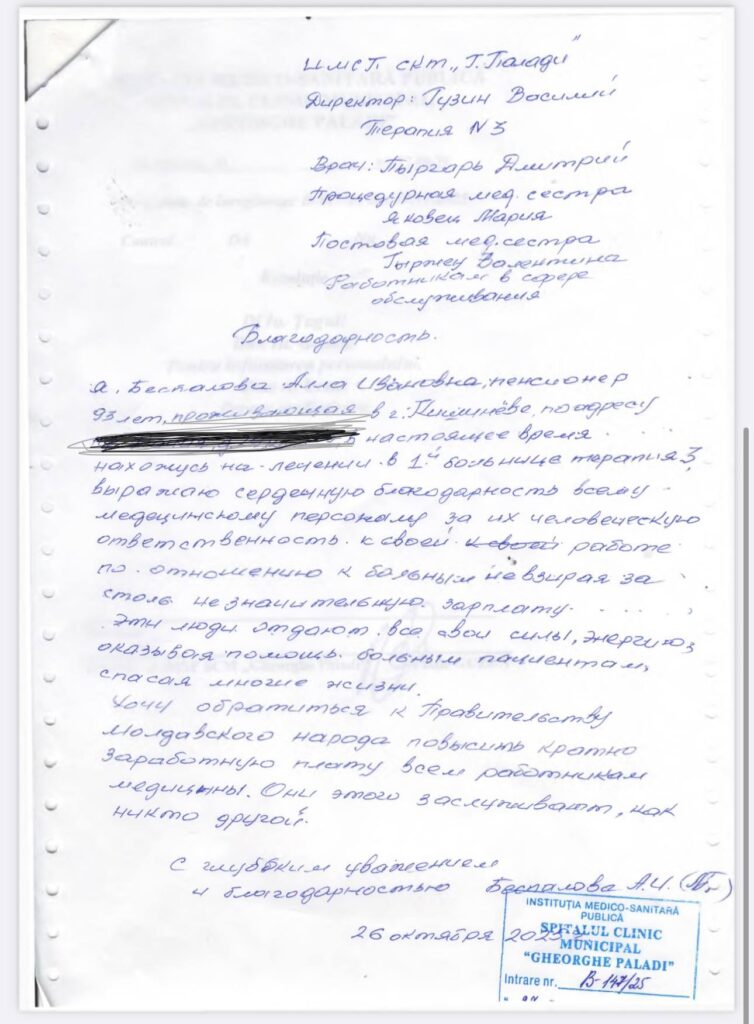 ИМСП СКТ „Г. Палади"
Директор: Гузин Василий
Терапия N 3
Врач: Пыргарь Дмитрий
Процедурная мед. сестра
Яковец Мария
Постовая мед. сестра
Гыржеу Валентина
Работникам в сфере
обслуживания
Благодарность.
Я, Беспалова Алла Ивановна, пенсионер
93 лет, проживающая в г. Кишинёве, по адресу
В настоящее время
нахожусь на лечении в 1ой больнице терапия 3,
выражаю сердечную благодарность всему
медецинскому персоналу за их человеческую
ответственность к своей к своей работе
по отношению к больным невзирая за
столь незначительную зарплату.
Эти люди отдают все свои силы, энергию,
оказывая помощь больным пациентам,
спасая многие жизни.
Хочу обратиться к Правительству
Молдавского народа повысить кратно
заработную плату всем работникам
медицины. Они этого заслуживают, как
никто другой.
С глубоким уважением
и благодарностью Беспалова А.И.
26 октября
INSTITUŢIA MEDICO-SANITARĂ
PUBLICĂ
SPITALUL CLINIC
MUNICIPAL
"GHEORGHE PALADI"
Intrare nr. B-147/25